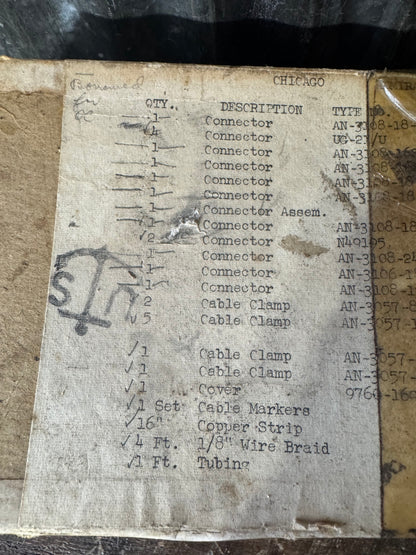 CHICAGO
Borrowed
for
QTY. DESCRIPTION TYPE NO.
1 Connector AN-3108-18
4 Connector UG-21/U
1 Connector AN-3108-16S
1 Connector AN-3108-
1 Connector AN-3108-18
1 Connector AN-3102-18
1 Connector Assem.
1 Connector AN-3108-18
2 Connector N49195
1 Connector AN-3108-24
1 Connector AN-3106-1
1 Connector AN-3108-1
2 Cable Clamp AN-3057-8
5 Cable Clamp AN-3057-1
1 Cable Clamp AN-3057-
1 Cable Clamp AN-3057-
1 Cover 9760-16
1 Set Cable Markers
16" Copper Strip
4 Ft. 1/8" Wire Braid
1 Ft. Tubing